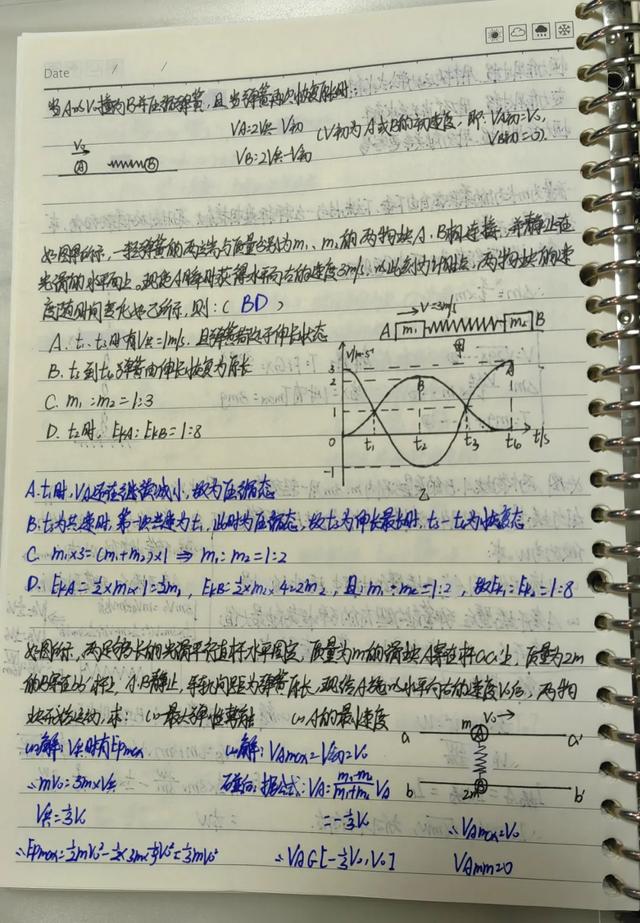 Date / /
当A以V₀撞向B并压缩弹簧,且当弹簧再次恢复原长时:
VA=2V共-V初 (V初为A或B的初速度,即:VA初=V₀,
VB=2V共-V初 VB初=0).
V₀
A B
如图甲所示,一轻弹簧的两端与质量分别为m₁、m₂的两物块A、B相连接,并静止在
光滑的水平面上。现使A瞬时获得水平向右的速度3m/s,以此刻为计时起点,两物块的速
度随时间变化如乙所示,则:( BD )
A. t₁、t₃时有V共=1m/s,且弹簧都处于伸长状态
B. t₃到t₄弹簧由伸长恢复为原长
C. m₁:m₂=1:3
D. t₂时,EkA:EkB=1:8
V=3m/s
A m₁ m₂ B
甲
V/m·s⁻¹
3
2
1
0
-1
A
B
t₁ t₂ t₃ t₆ t/s
乙
A. t₁时,VA还在继续减小,故为压缩态
B. t₃为共速时,第一次共速为t₁,此时为压缩态,故t₃为伸长最长时,t₃-t₄为恢复态
C. m₁×3=(m₁+m₂)×1 ⇒ m₁:m₂=1:2
D. EkA=½×m₁×1=½m₁, EkB=½×m₂×4=2m₂,且:m₁:m₂=1:2,故Ek₁:Ek₂=1:8
如图所示,两足够长的光滑平行直杆水平固定,质量为m的滑块A穿在杆aa'上,质量为2m
的B穿在bb'杆上,A、B静止,等到间距为弹簧原长,现给A块以水平向右的速度V₀后,两物
块开始运动,求: (1)最大弹性势能 (2)A的最小速度
(1)解:V共时有Epmax
∴mV₀=3m×V共
V共=⅓V₀
∴Epmax=½mV₀²-½×3m×(⅓V₀)²=⅓mV₀²
(2)解:VAmax=V初=V₀
碰后:据公式:VA=(m₁-m₂)/(m₁+m₂) VA
=-⅓V₀
∴VA∈[-⅓V₀,V₀]
∴VAmax=V₀
VAmin=0
m V₀
a A a'
b 2m B b'